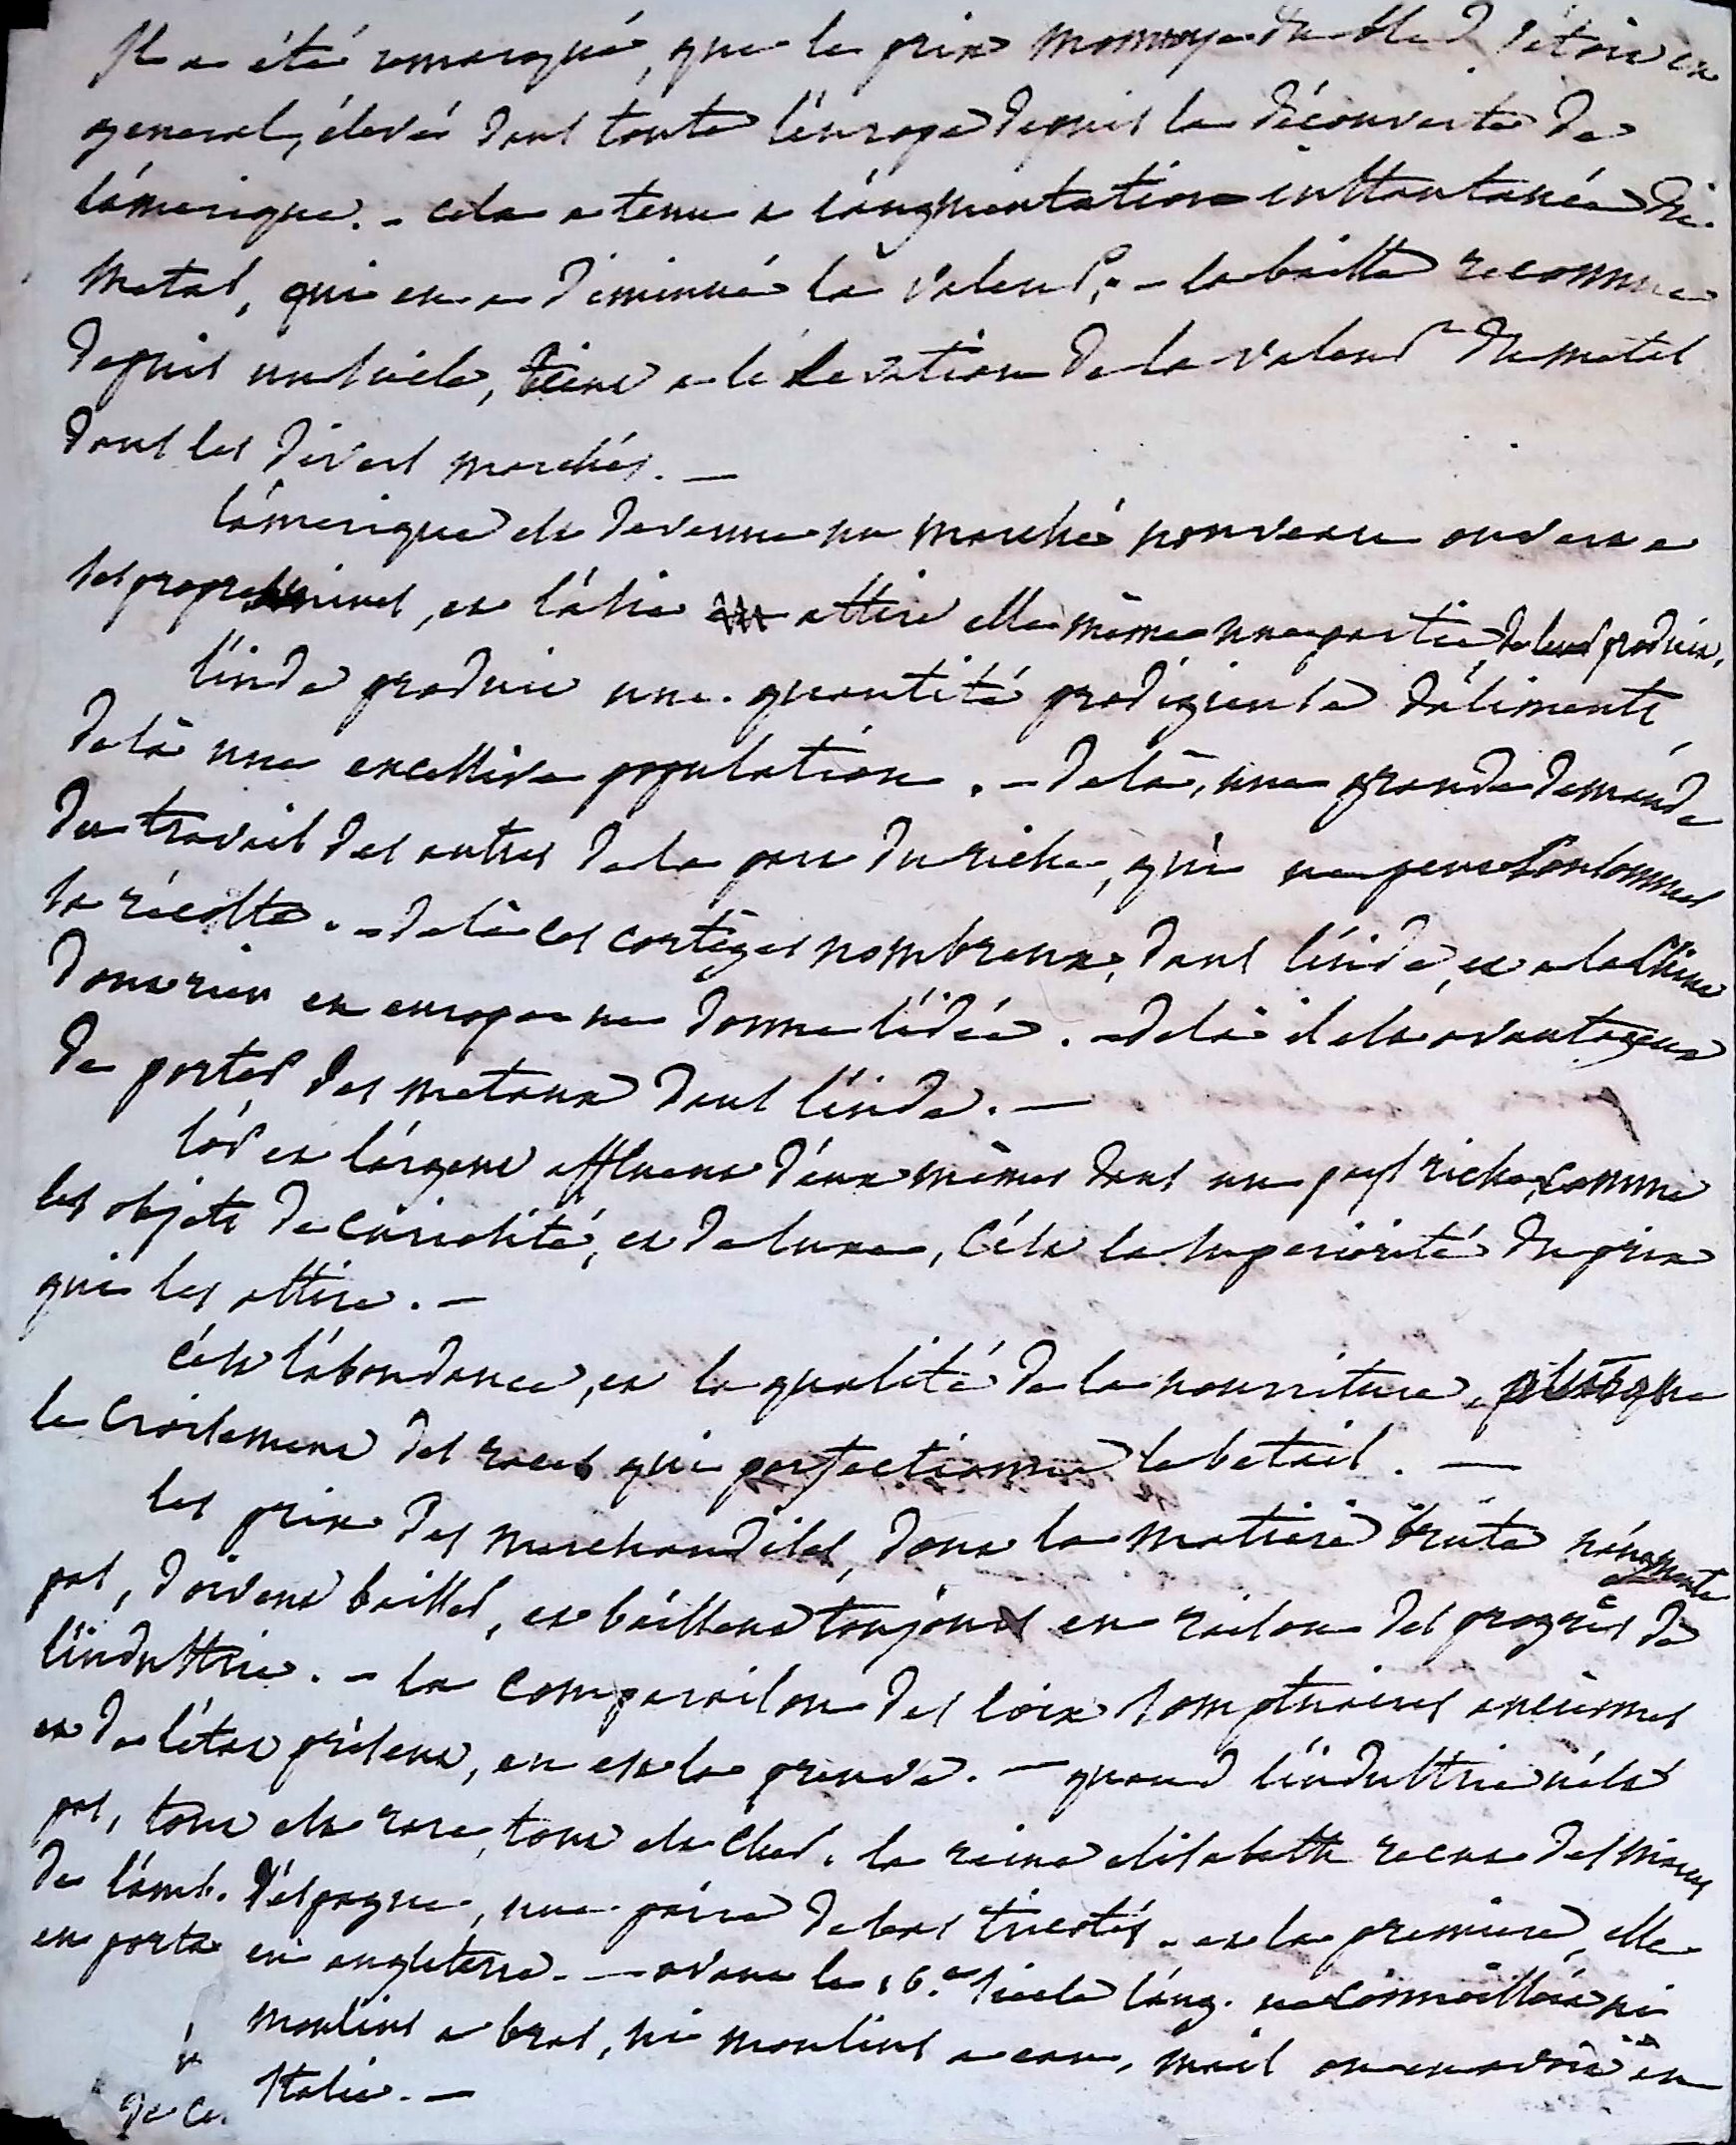 Il a été remarqué, que le prix monnoye du bled s'étoit en
general, élevé dans toute l'europe depuis la découverte de
l'amerique. - cela a tenu a l'augmentation instantanée du
metal, qui en a diminué la valeur, - la baisse reconnue
depuis un siècle, tient a l'élévation de la valeur du metal
dans les divers marchés. -
l'amerique est devenue un marché nouveau ouvert a
ses propres mines, et l'asie attire elle même une partie de leur produit.
l'inde produit une quantité prodigieuse d'aliments
delà une excessive population. - delà, une grande demande
du travail des autres de la part du riche, qui ne peut consommer
sa récolte. - delà ces cortèges nombreux, dans l'inde, et a la Chine
dont rien en europe ne donne l'idée. - delà il est avantageux
de porter des metaux dans l'inde. -
l'or et l'argent affluent d'eux mêmes dans un pays riche, comme
les objets de curiosité, et de luxe, c'est la superiorité du prix
qui les attire. -
c'est l'abondance, et la qualité de la nourriture, plus que
le croisement des races qui perfectionne le betail. -
les prix des marchandises, dont la matiere brute n'augmente
pas, doivent baisser, et baissent toujours en raison des progrès de
l'industrie. - la comparaison des loix somptuaires anciennes
et de l'état présent, en est la preuve. - quand l'industrie n'est
pas, tout est rare, tout est cher. la reine elisabeth recut des mains
de l'amb. d'espagne, une paire de bas tricotés. et la premiere, elle
en porta en angleterre. - avant le 16.e siecle l'ang. ne connoissoit ni
moulins a bras, ni moulins a eau, mais on en avoit en
Italie. -
de ce